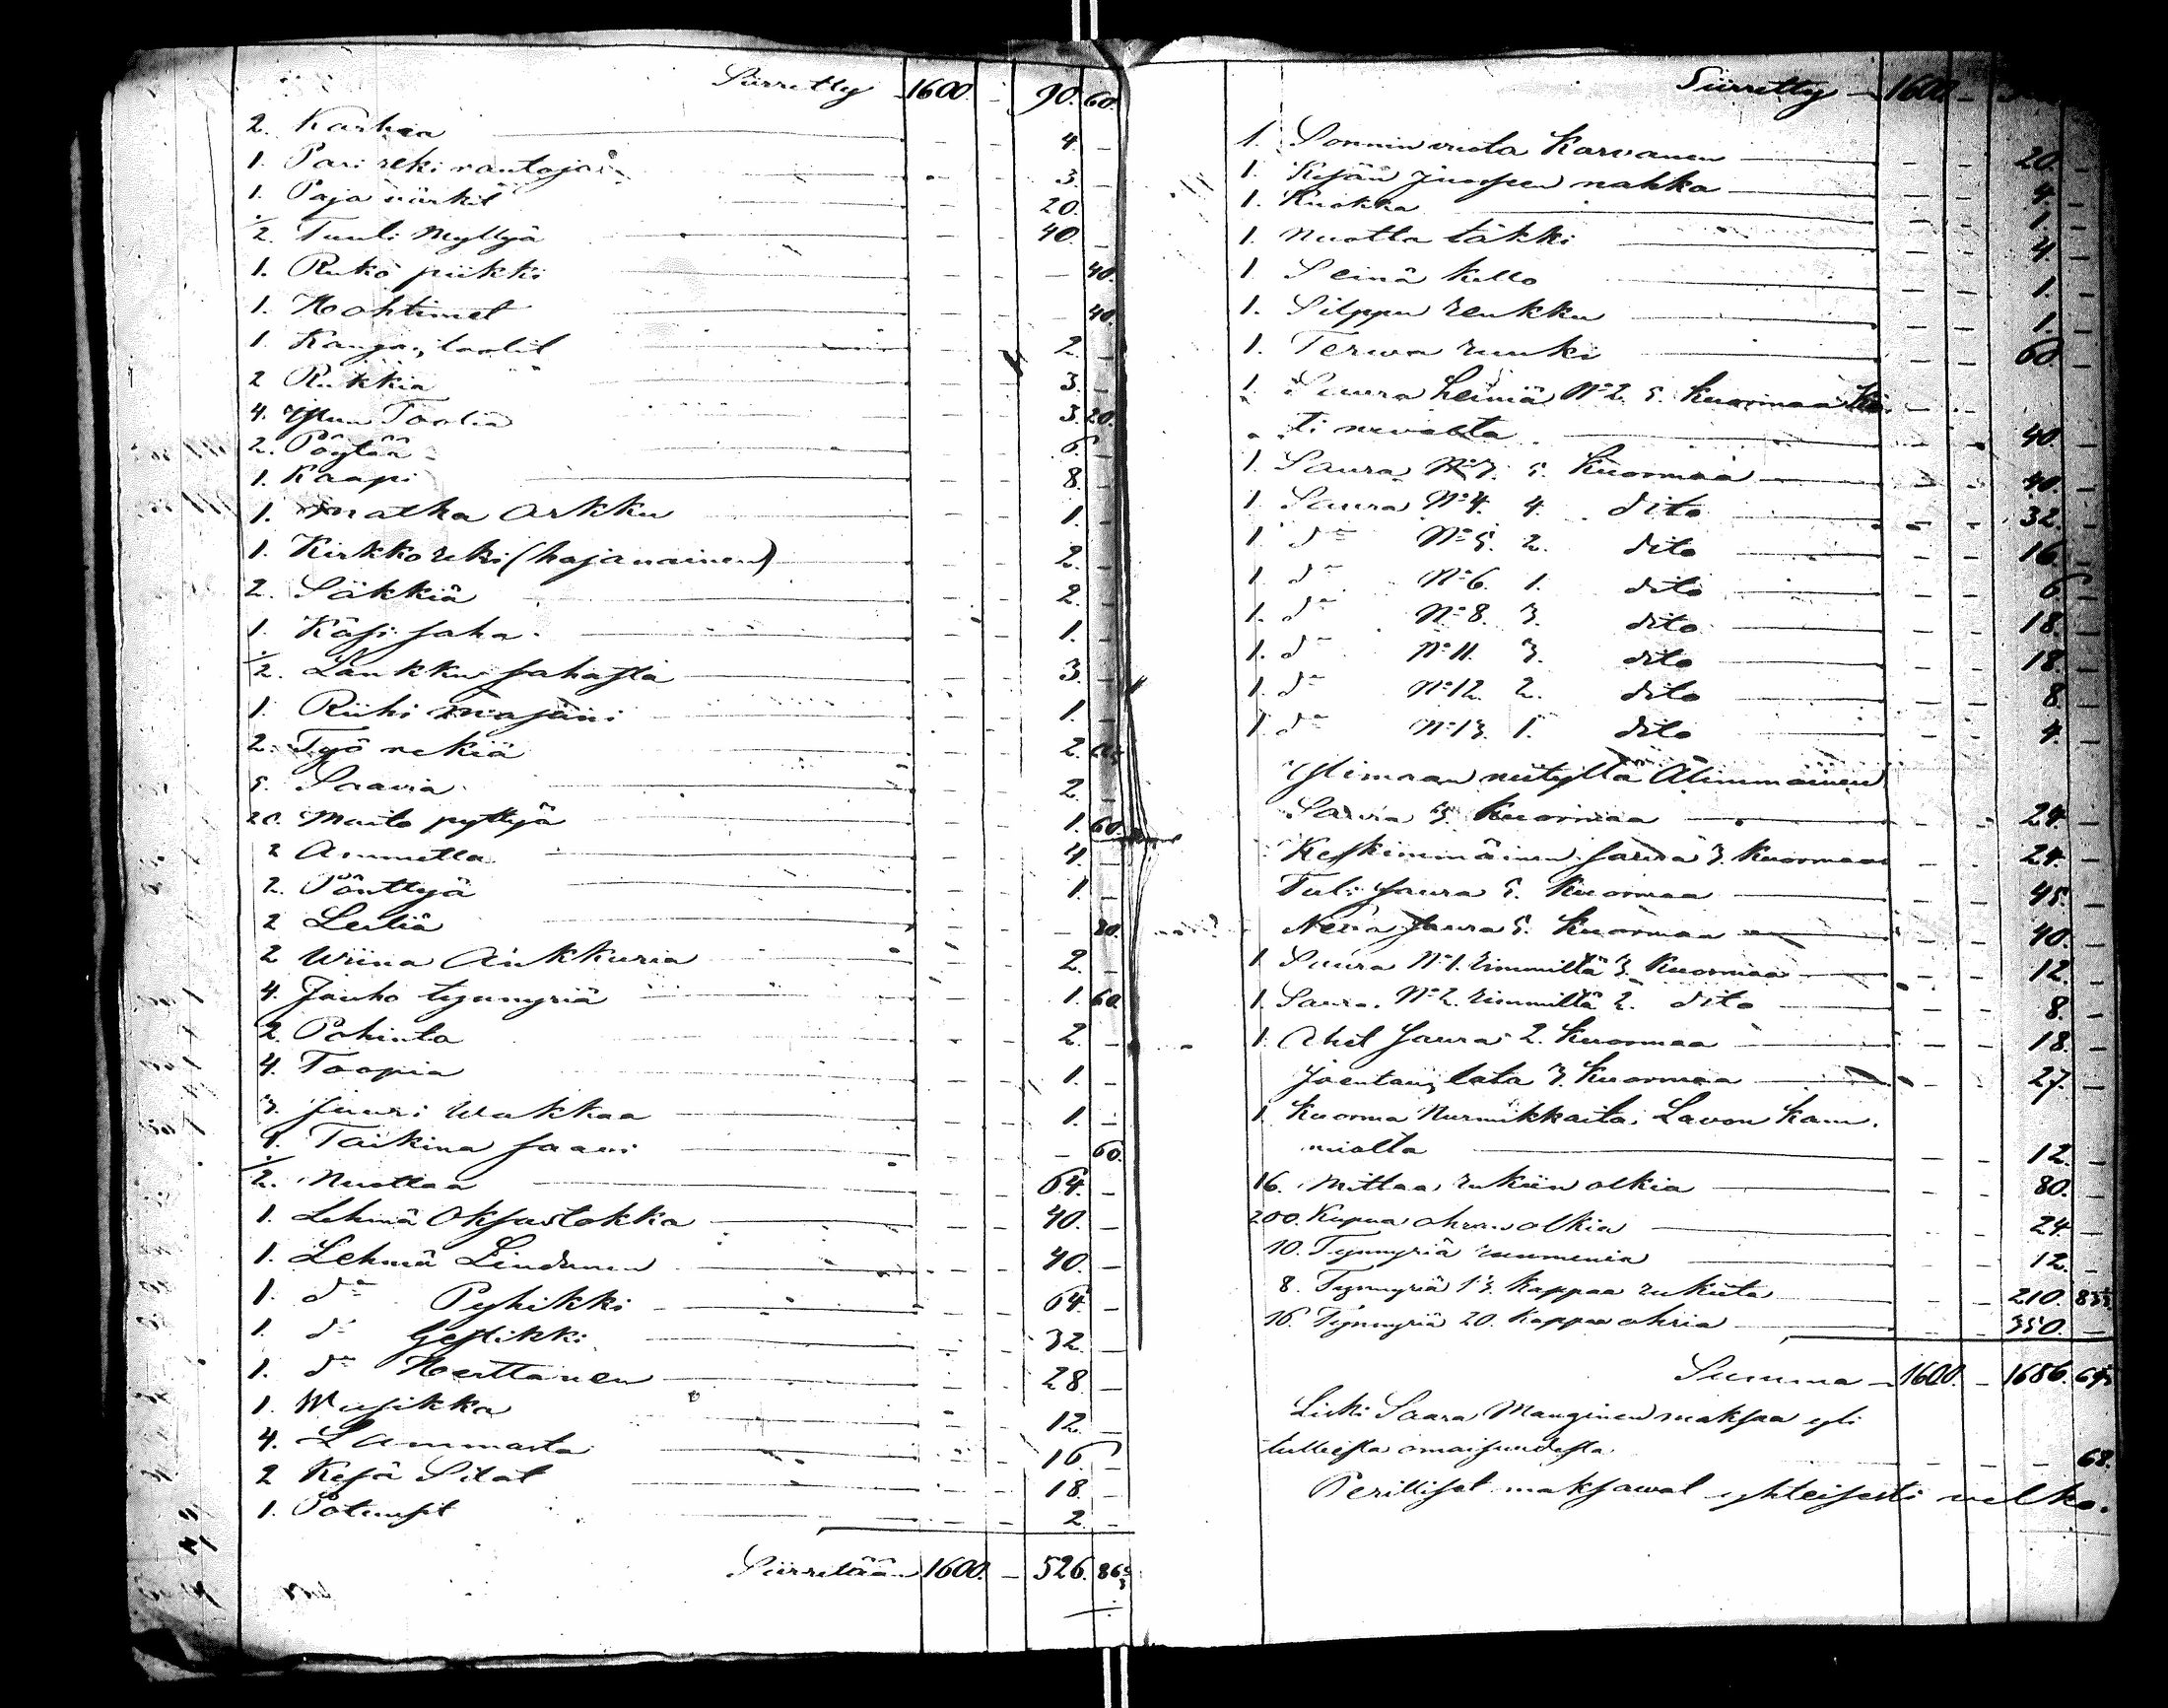 Siirretty 1600. - 90. 60.
2. Karhea - - 4. -
1. Pari reki rautoja - - 3. -
1. Paja - - 20. -
1/2. Tuuli Myllyä - - 40. -
1. Ruko piikki - - - 40.
1. Hohtimet - - - 40.
1. Kangas toolit - - 2. -
2 Rukkia - - 3. -
4. Toolia - - 3. 20.
2. Pöytää - - 6. -
1. Kaapi - - 8. -
1. Matka Arkku - - 1. -
1. Kirkko reki (hajanainen) - - 2. -
2. Säkkiä - - 2. -
1. Käsi saha - - 1. -
1/2. Lankku sahasta - - 3. -
1. Riihi - - 1. -
2. Työ rekiä - - 2.
5. Saavia - - 2. -
20. Maito pyttyä - - 1. 60.
2 Ammetta - - 4. -
2. Pönttyä - - 1. -
2 Leiliä - - - 80.
2 Wiina Ankkuria - - 2. -
4. Jauho tynnyriä - - 1. 60.
2. Pohinta - - 2. -
4. Toopia - - 1. -
3. Juuri Wakkaa - - 1. -
1. Taikina saavi - - - 60.
1/2. Nuottaa - - 64. -
1. Lehmä - - 40. -
1. Lehmä - - 40. -
1. do Pyhikki - - 64. -
1. do - - 32. -
1. do Herttanen - - 28. -
1. Musikka - - 12. -
4. Lammasta - - 16. -
2 Kesä Sikat - - 18. -
1. - - 2. -
Siirretään 1600. - 526. 86
Siirretty 1600. -
1. Sonnin vuota Karvanen - - 20. -
1. nahka - - 4. -
1. Kuokka - - 1. -
1. Nuotta täkki - - 4. -
1. Seinä kello - - 1. -
1. Silppu renkku - - 1. -
1. Terwa ruuki - - 60. -
1. Saura heiniä No 2. 5. Kuormaa
- - 40. -
1. Saura No 3. 5. Kuormaa - - 40. -
1 Saura No 4. 4. dito - - 32. -
1. do No 5. 2. dito - - 16. -
1. do No 6. 1. dito - - 6. -
1. do No 8. 3. dito - - 18. -
1. do No 11. 3. dito - - 18. -
1. do No 12. 2. dito - - 8. -
1. do No 13. 1. dito - - 4. -
niityllä Alimmainen
Saura 3. Kuormaa - - 24. -
Keskimmäinen saura 3. Kuormaa - - 24. -
Tuli saura 5. Kuormaa - - 45. -
saura 5. Kuormaa - - 40. -
1 Saura No 1. rimmiltä 3. Kuormaa - - 12. -
1. Saura No 2. rimmiltä 2. dito - - 8. -
1. saura 2. Kuormaa - - 18. -
3. Kuormaa - - 27. -
1. Kuorma Nurmikkaita Lavon Kam-
mialta - - 12. -
16. Mittaa rukiin olkia - - 80. -
200. Kupua ohran olkia - - 24. -
10. Tynnyriä ruumenia - - 12. -
8. Tynnyriä 13. Kappaa rukiita - - 210. 83
16. Tynnyriä 20. Kappaa ohria - - 350. -
Summa 1600. - 1686.
Leski Saara Manginen maksaa yli
tulleesta omaisuudesta - - - 68.
Perilliset maksawat yhteisesti